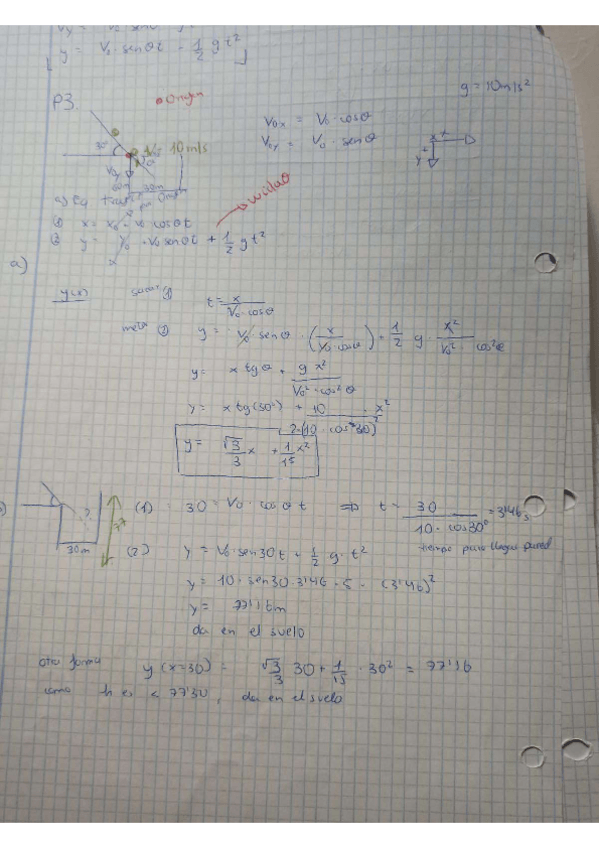 y = V₀ · senθt - 1/2 g t²
g = 10m/s²
P3.
• Origen
V₀ₓ = V₀ · cosθ
V₀y = V₀ · senθ
30°
V₀ = 10m/s
x +
y +
60m
30m
① x = x₀ + v₀ cosθt
② y = y₀ + V₀ senθt + 1/2 g t²
a)
y(x)
①
t = x / V₀ · cosθ
②
y = V₀ senθ · (x / V₀ · cosθ) + 1/2 g · x² / V₀² · cos²θ
y = x tgθ + g x² / V₀² · cos²θ
y = x tg(30°) + 10 / 2·(10 · cos30)² · x²
y = √3/3 x + 1/15 x²
77
30m
(1) 30 = V₀ · cosθ t ⇒ t = 30 / 10 · cos30° = 3'46 s
tiempo para llegar pared
(2) y = V₀ · sen30t + 1/2 g · t²
y = 10 · sen30 · 3'46 + 5 · (3'46)²
y = 77'1
da en el suelo
otra forma y (x=30) = √3/3 30 + 1/15 · 30² = 77'36
como h es < 77'30, da en el suelo